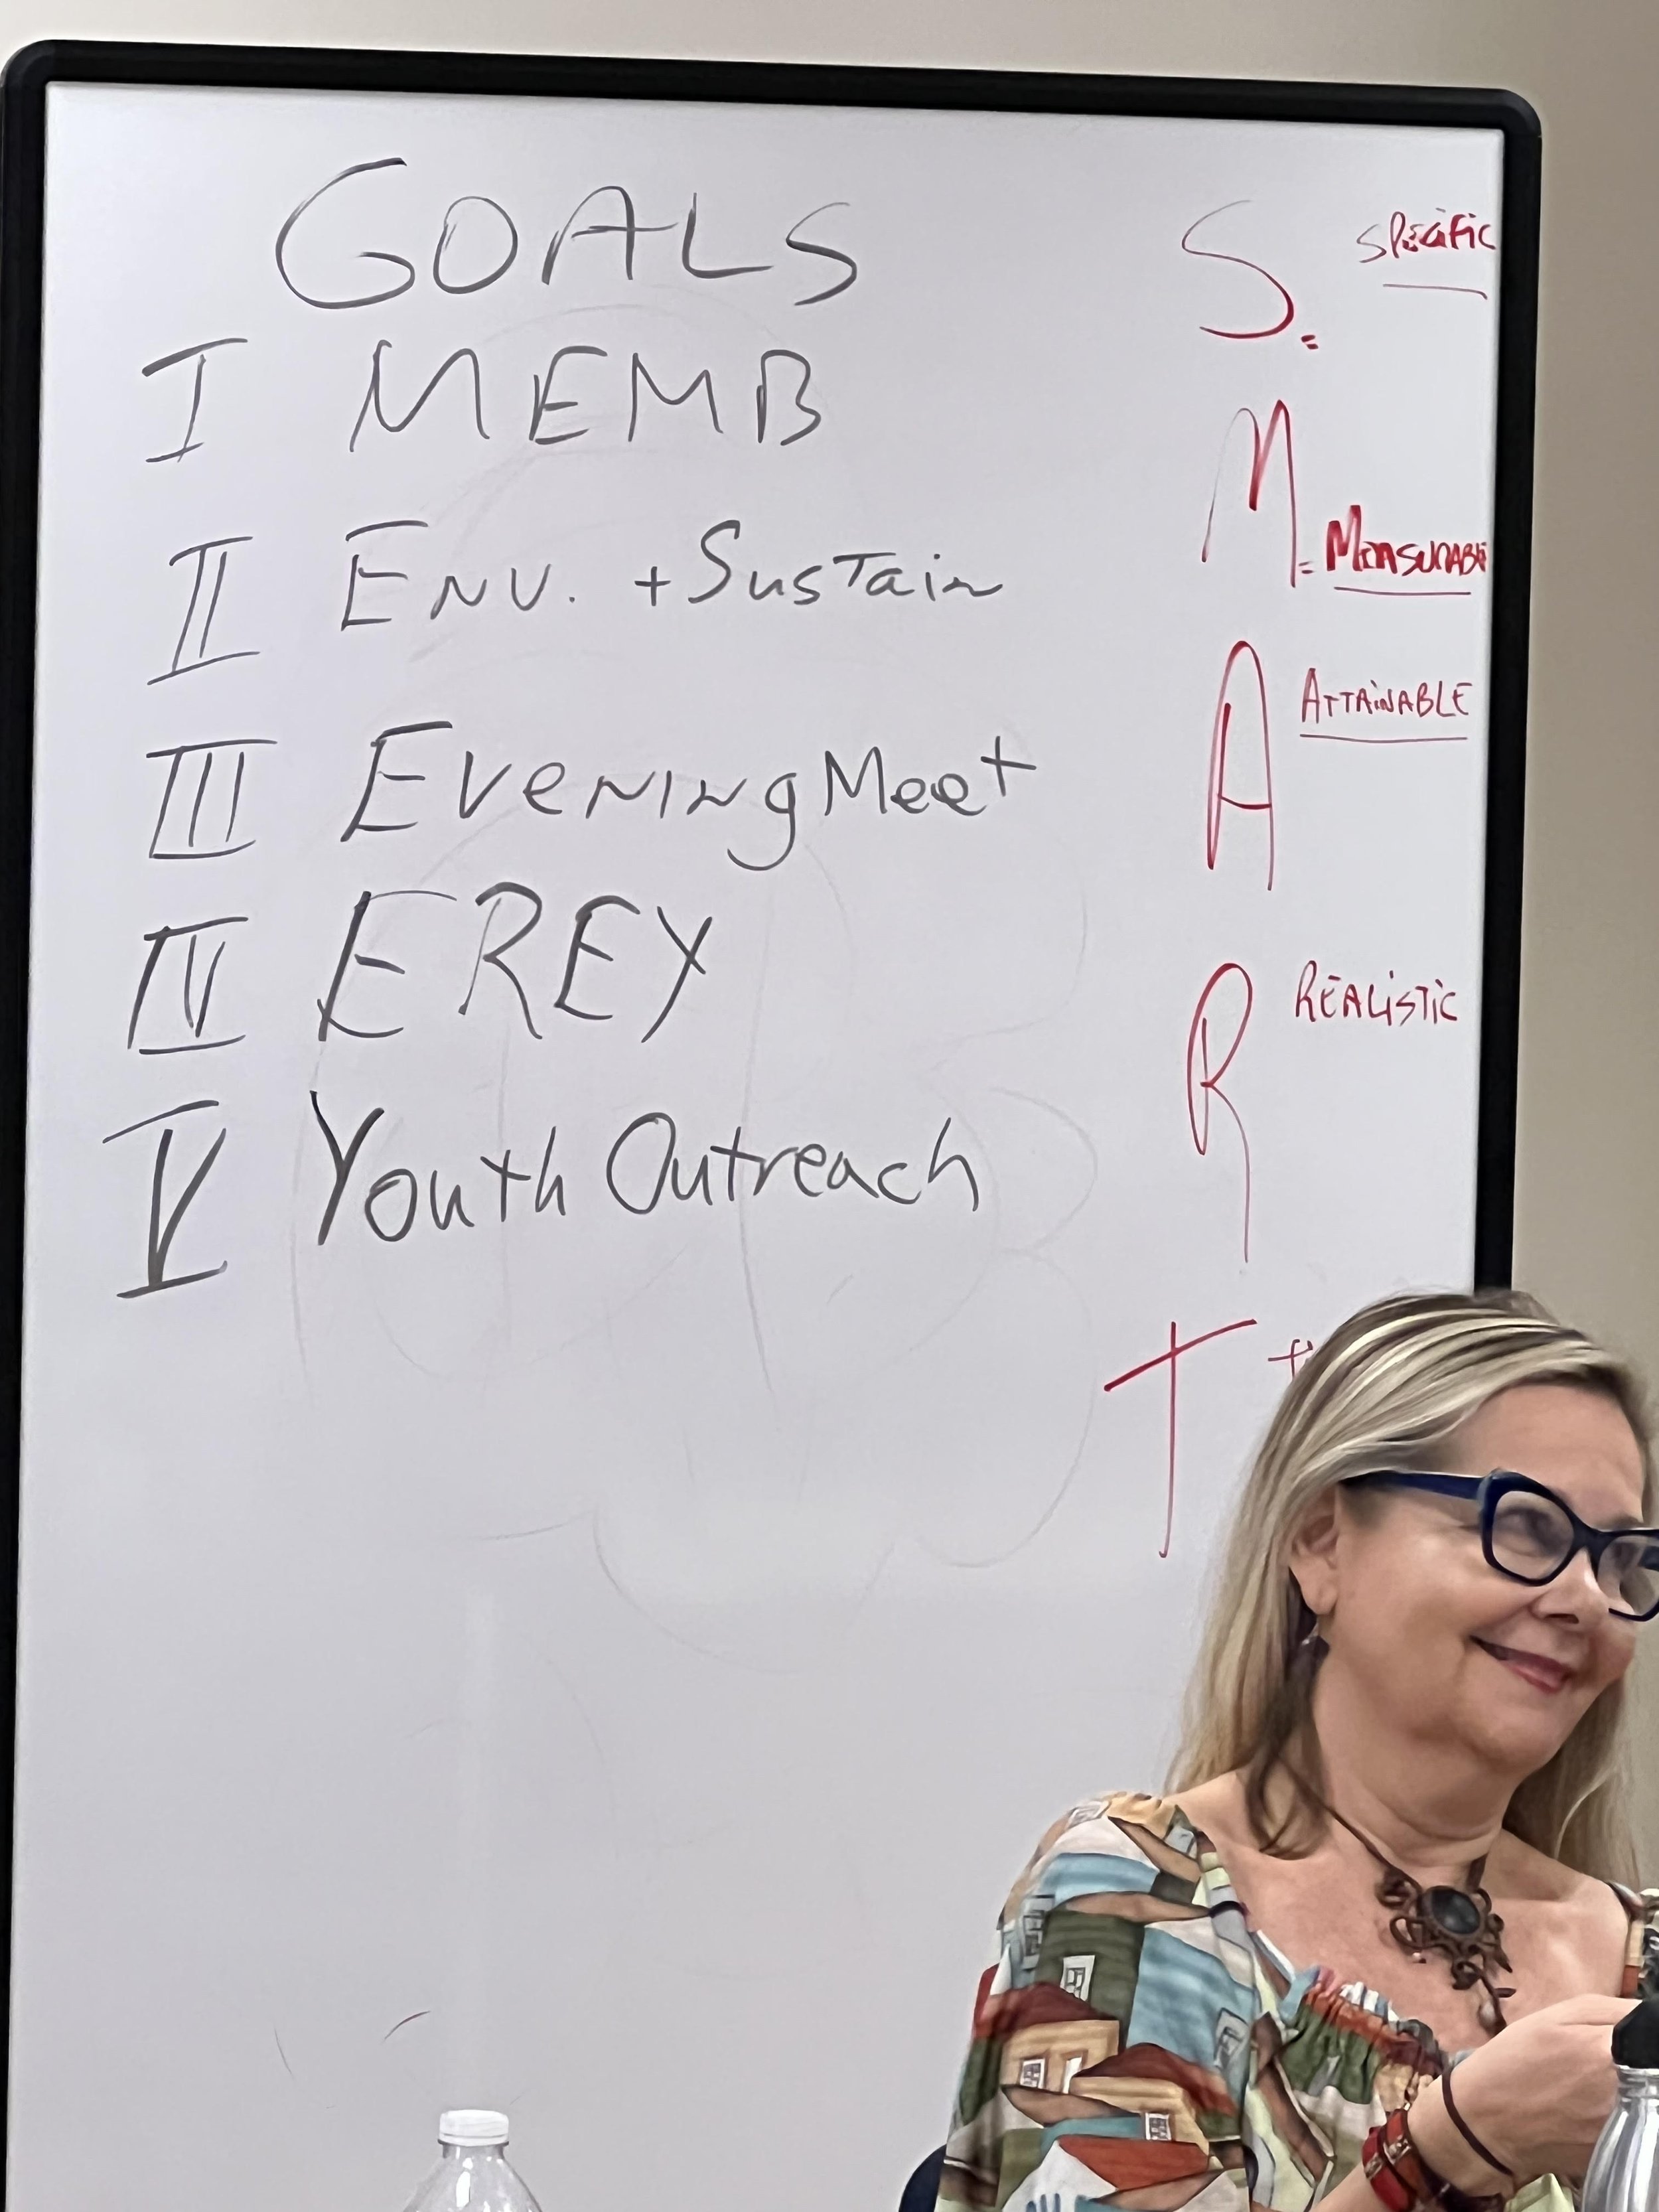 GOALS
I MEMB
II ENV. + Sustain
III Evening Meet
IV EREY
V Youth Outreach
S. = Specific
M. = MEASURABLE
A ATTAiNABLE
R REALiSTiC
T